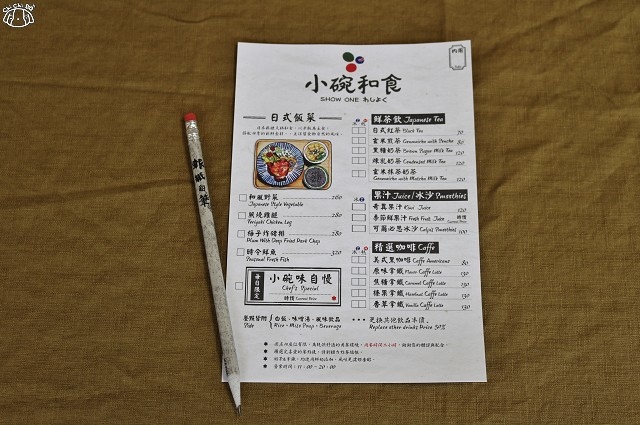 小碗和食
SHOW ONE わしょく
內用
日式飯菜
和風野菜 260
Japanese Style Vegetable
照燒雞腿 280
Teriyaki Chicken Leg
梅子炸豬排 280
Plum With Deep Fried Pork Chop
時令鮮魚 320
Seasonal Fresh Fish
每日限定
小碗味自慢
Chef's Special
時價 Current Price
套餐皆附
Side
白飯、味噌湯、風味飲品
Rice、Miso Soup、Beverage
鮮茶飲 Japanese Tea
日式紅茶 Black Tea 70
玄米煎茶 Genmaicha with Sencha 80
黑糖奶茶 Brown Sugar Milk Tea 120
煉乳奶茶 Condensed Milk Tea 120
玄米抹茶奶茶
Genmaicha with Matcha Milk Tea 120
果汁 Juice/冰沙 Smoothies
奇異果汁 Kiwi Juice 120
季節鮮果汁 Fresh Fruit Juice 時價
Current Price
可爾必思冰沙 Calpis Smoothies 100
精選咖啡 Caffe
美式黑咖啡 Caffe Americano 80
原味拿鐵 Flavor Caffe Latte 130
焦糖拿鐵 Caramel Caffe Latte 130
榛果拿鐵 Hazelnut Caffe Latte 130
香草拿鐵 Vanilla Caffe Latte 130
更換其他飲品半價。
Replace other drinks Price 50%
營業時間：11:00 - 20:00